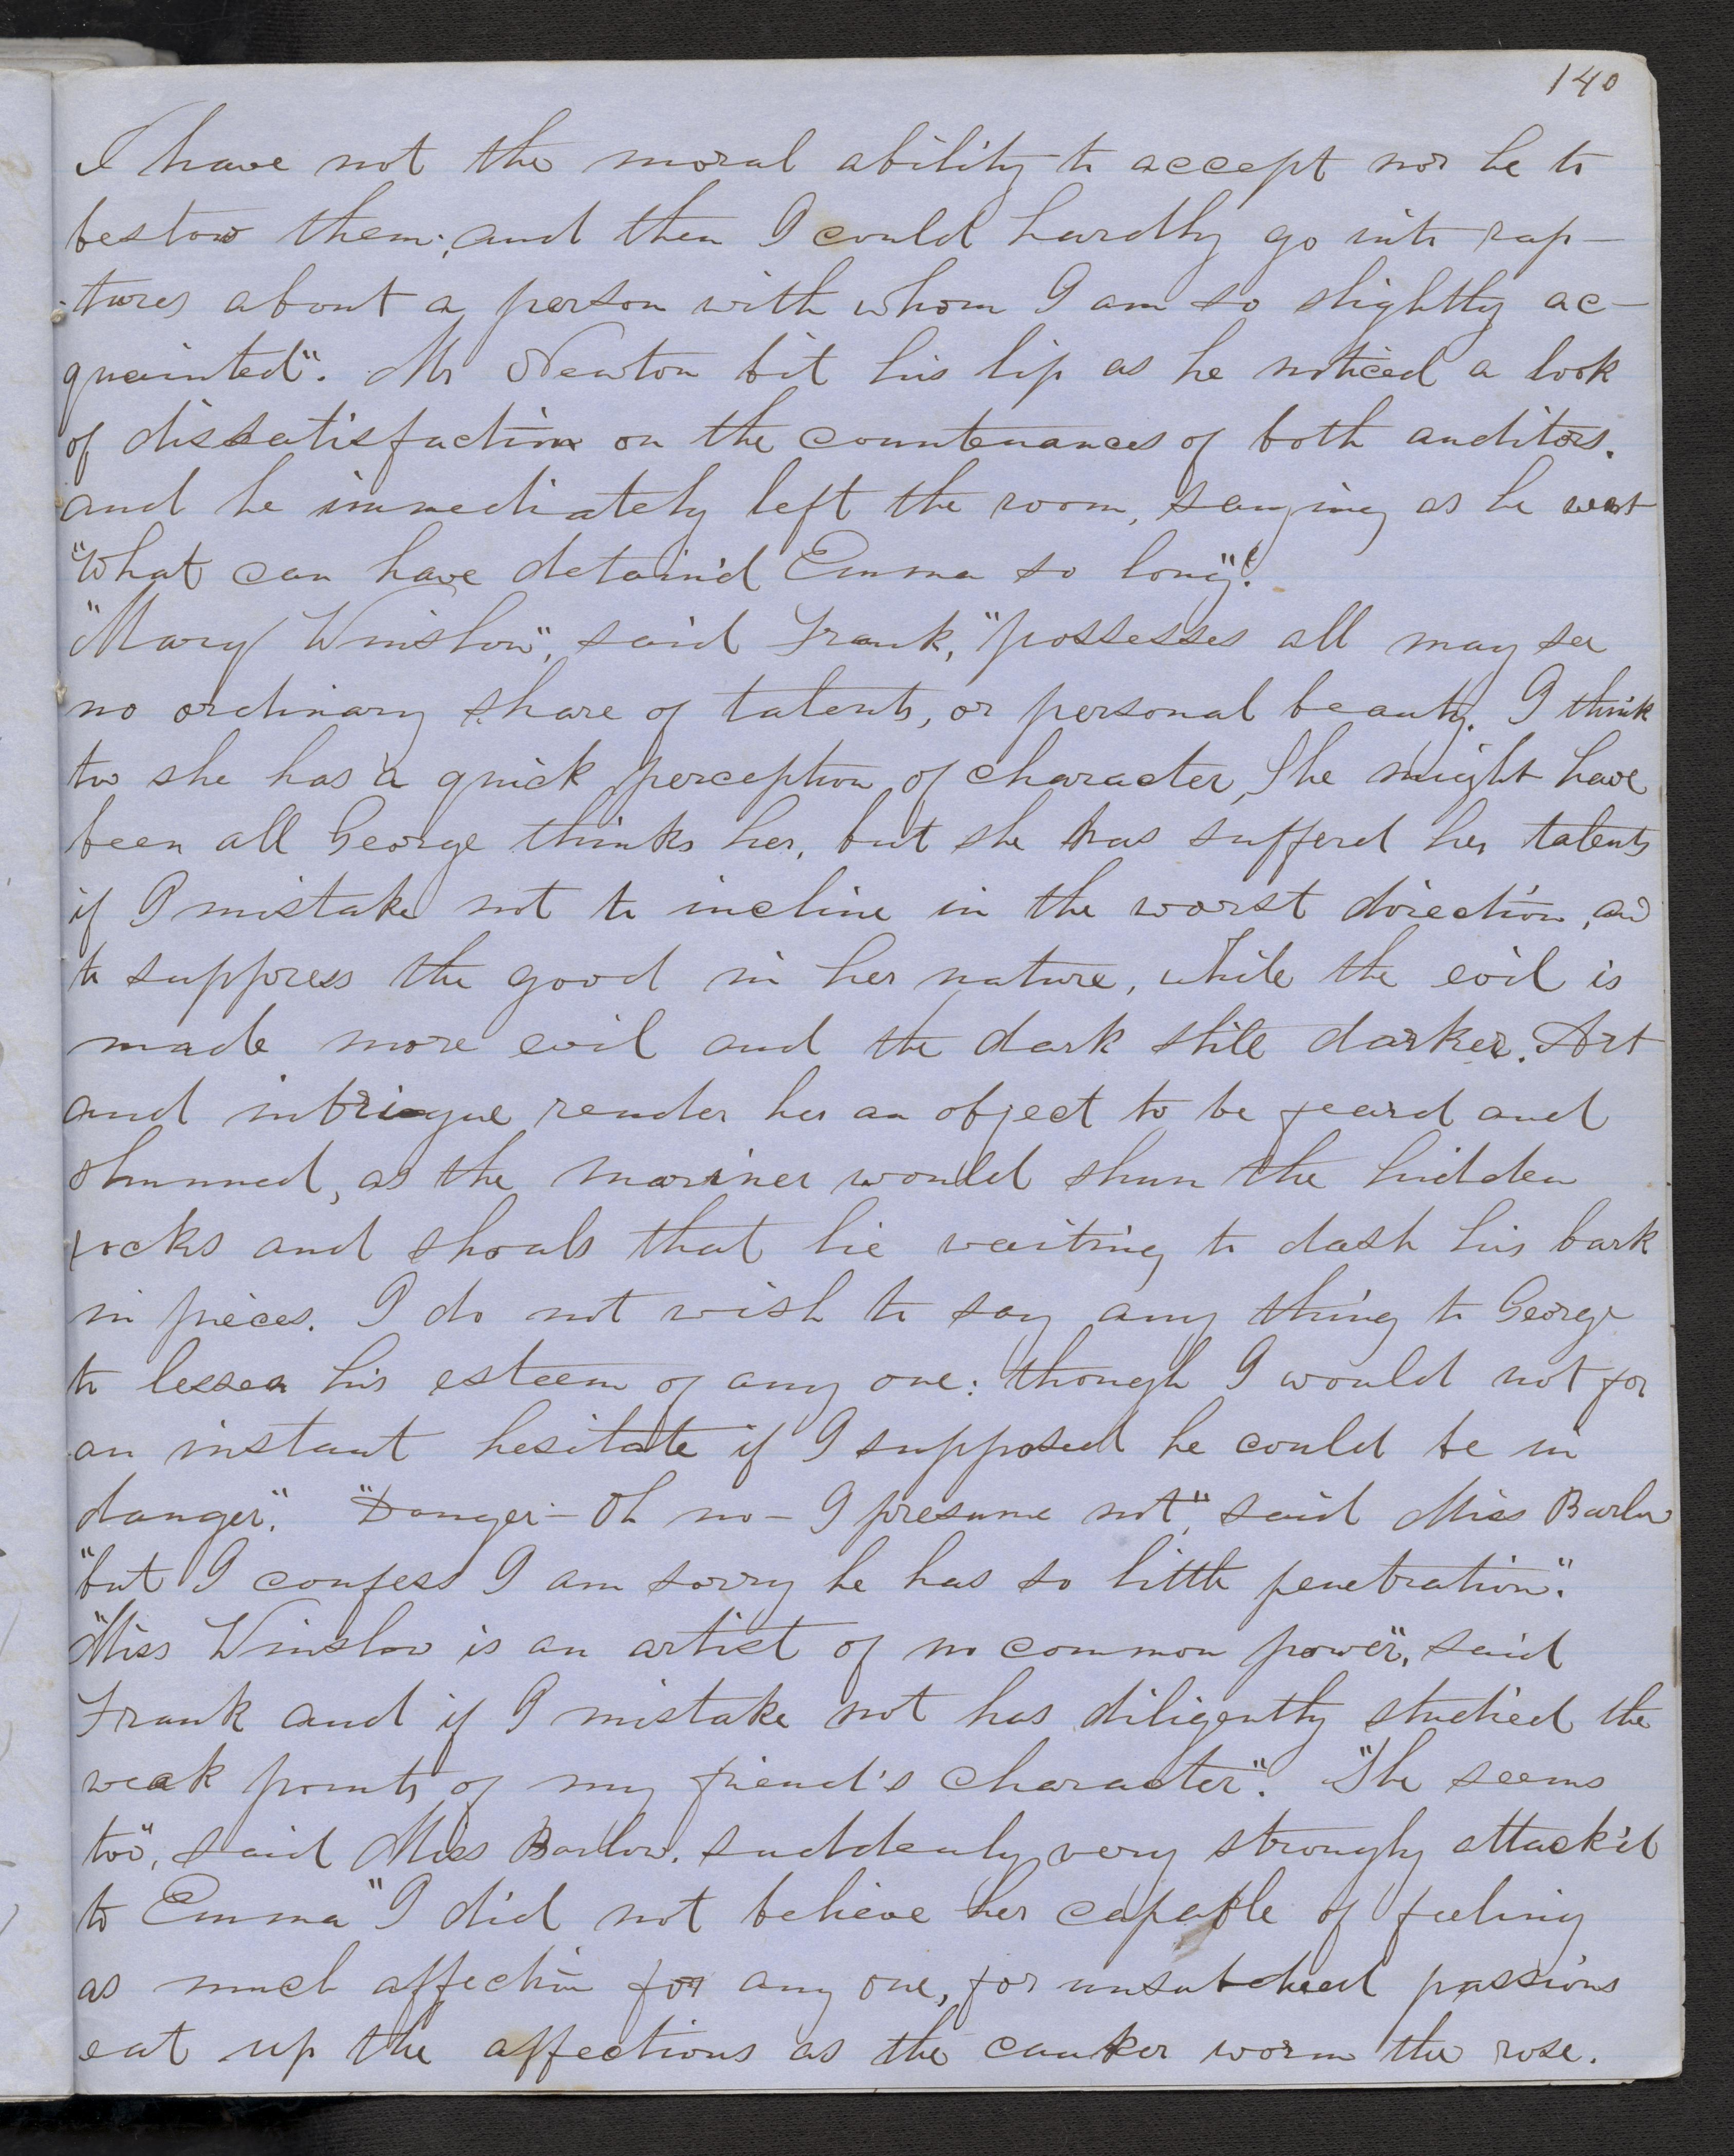 140
I have not the moral ability to accept nor he to
bestow them; and then I could hardly go into rap-
-tures about a person with whom I am so slightly ac-
quainted". Mr Newton bit his lip as he noticed a look
of dissatisfaction on the countenances of both auditors.
and he immediately left the room, saying as he went
"What can have detain'd Emma so long"?
"Mary Winslow", said Frank, "possesses all may see
no ordinary share of talents, or personal beauty. I think
too she has a quick perception of character, She might have
been all George thinks her, but she has sufferd her talents
if I mistake not to incline in the worst direction, and
to suppress the good in her nature, while the evil is
made more evil and the dark still darker. Art
and intriegue render her an object to be feard and
shunned, as the mariner would shun the hidden
rocks and shoals that lie waiting to dash his bark
in pieces. I do not wish to say any thing to George
to lessen his esteem of any one: though I would not for
an instant hesitate if I supposed he could be in
danger". "Danger- Oh no- I presume not", said Miss Barlow
"but I confess I am sorry he has so little penetration".
"Miss Winslow is an artist of no common power", said
Frank and if I mistake not has diligently studied the
weak points of my friend's character". "She seems
too", said Miss Barlow. suddenly very strongly attach'd
to Emma "I did not believe her capable of feeling
as much affection for any one, for unsubdued passions
eat up the affections as the canker worm the rose.